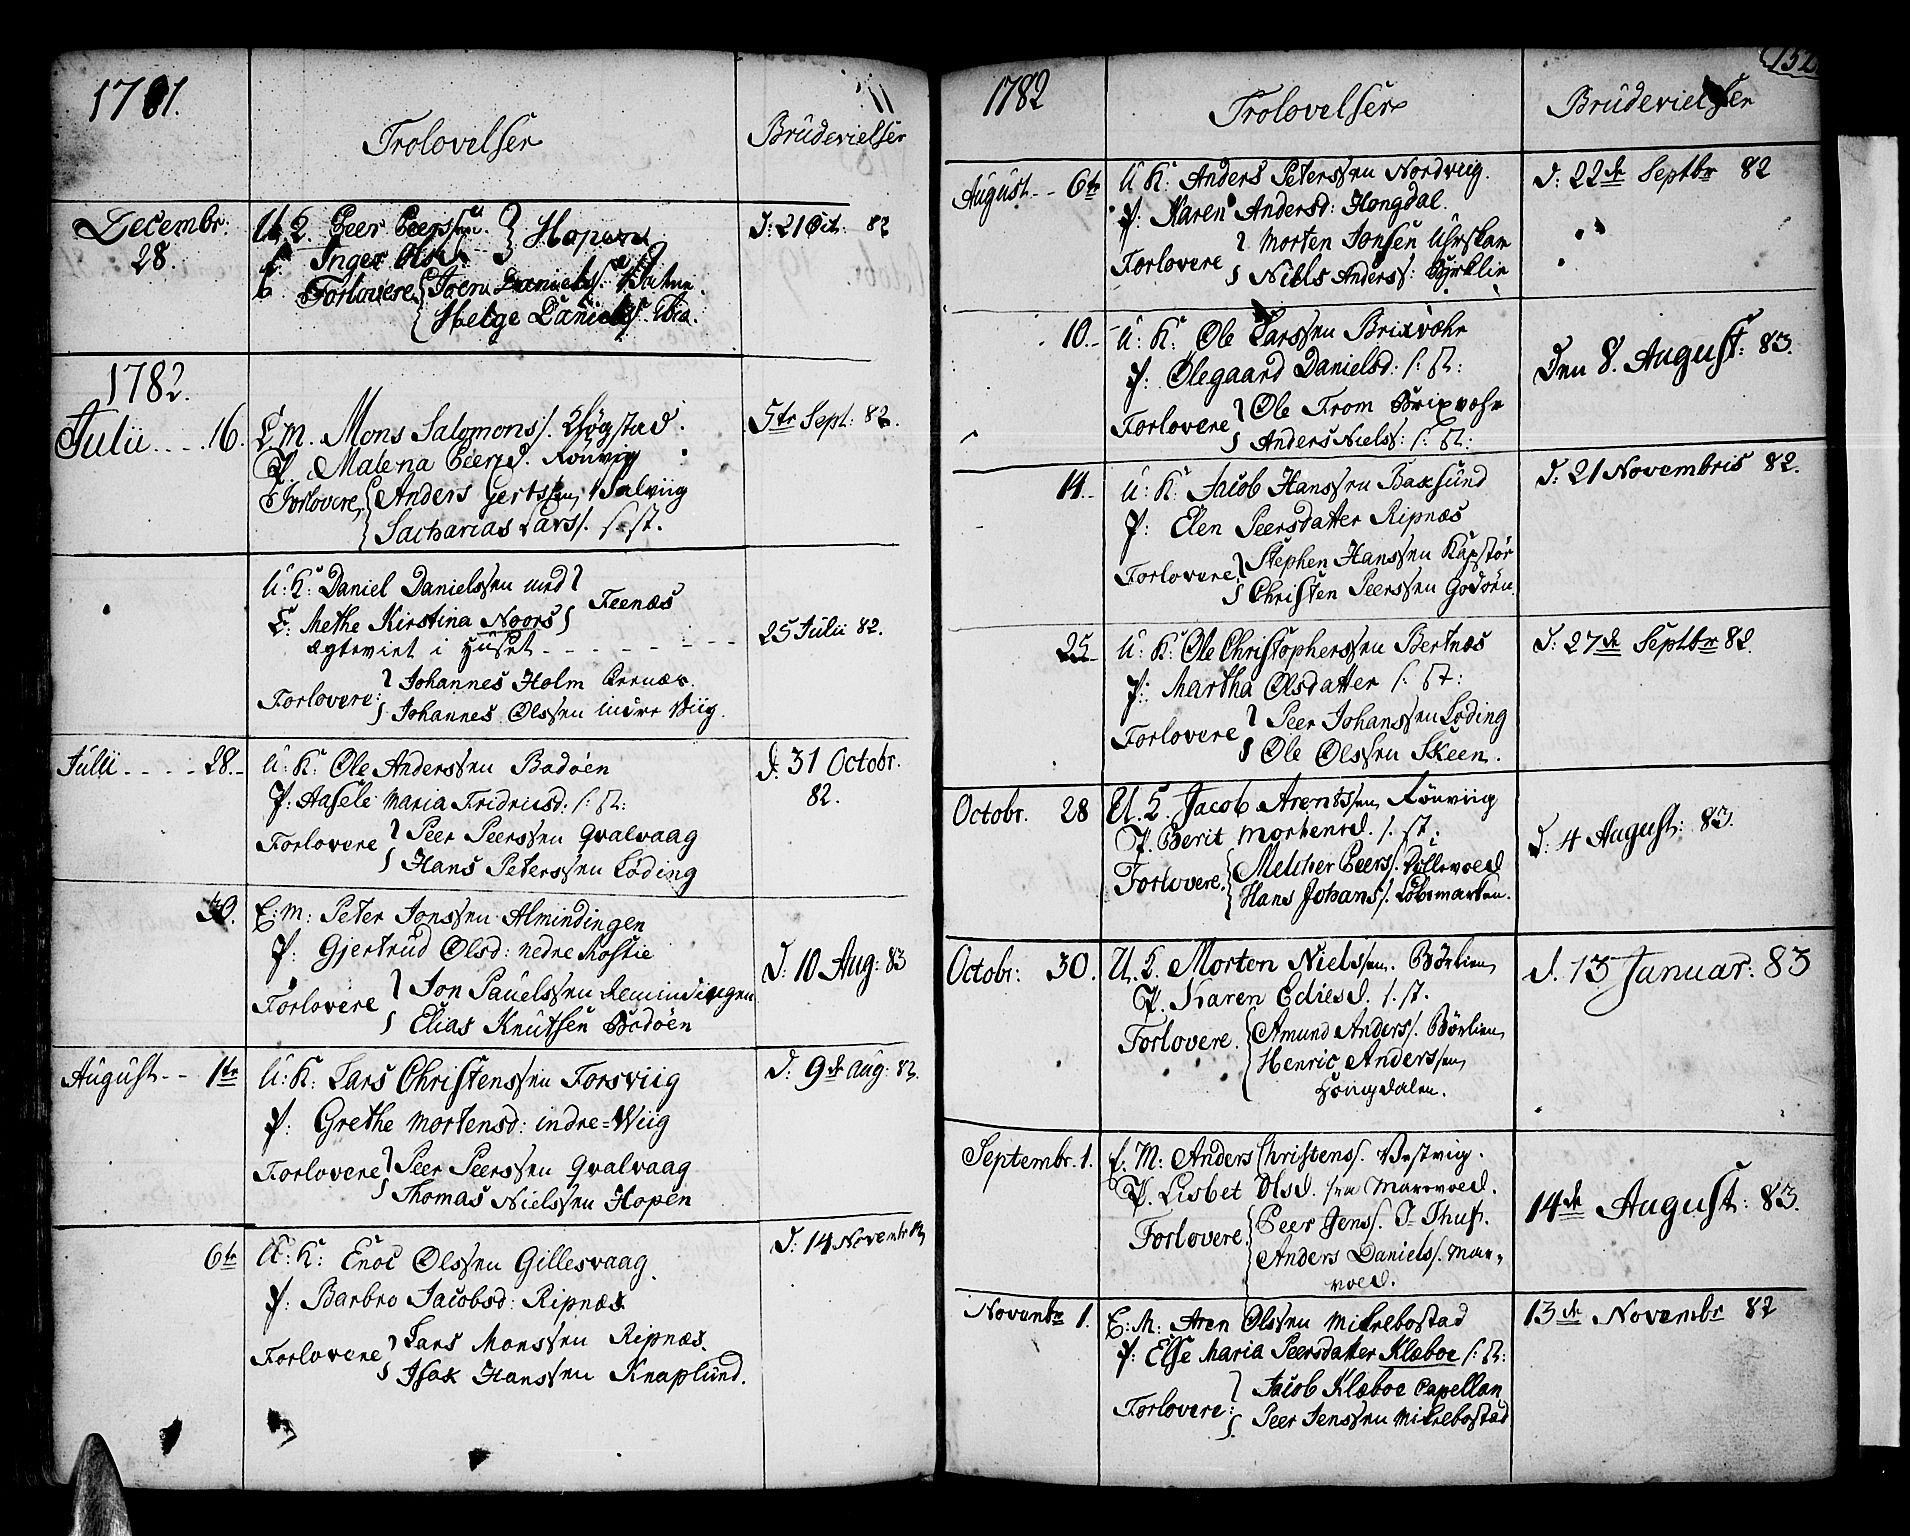 1781.
Trolovelser
Brudevielser
Decembr: 28.
U. K. Peer Peerssen
P. Inger Olsd. } Hopen
Forlovere { Joen Daniels.
Helge Daniels. ibid.
D: 21 Oct: 82
1782.
Julii 16.
E. M. Mons Salomons. Høgstad.
P. Malena Peersd. Rönvig
Forlovere { Anders Gertssen, Valviig
Sacharias Lars. s. st.
5te Sept: 82.
U: K: Daniel Danielssen med
E: Methe Kirstina Noors } Feenæs
ægteviet i Huset
Forlovere: Johannes Holm
Johannes Olssen indre Viig.
25 Julii 82.
Julii 28.
U: K: Ole Anderssen Badöen
P: Aasele Maria Fridricsd: s: st:
Forlovere Peer Peerssen Qvalvaag
Hans Peterssen Löding
D. 31 Octobr. 82.
30.
E: M: Peter Jonssen Almindingen
P: Gjertrud Olsd: nedre Kostie
Forlovere Jon Pauelssen Almindingen
Elias Knutsen Bodöen
D: 10 Aug: 83
August 1te
U: K: Lars Christenssen Forsviig
P: Grethe Mortensd: indre=Viig
Forlovere Peer Peerssen Qvalvaag
Thomas Nielssen Hopen
D: 9de Aug: 83.
6te
U: K: Enoc Olssen Gillesvaag.
P: Barbro Jacobsd: Ripnæs
Forlovere Lars Monssen Ripnæs.
Isak Hanssen Knaplund.
D: 14 Novembr 82
1782
Trolovelser
Brudevielser
152
August 6te
U: K: Anders Peterssen Nordviig.
P: Karen Andersd: Hongdal.
Forlovere Morten Jonsen
Niels Anderss:
D: 22de Septbr 82
10.
U: K: Ole Larssen Brixvæhr
P: Olegaard Danielsd: s: st:
Forlovere Ole From Brixvæhr
Anders Niels: s: st:
Den 8. August: 83.
14.
U: K: Jacob Hanssen Baxsund
P: Elen Peersdatter Ripnæs
Forlovere Stephen Hanssen Kapstör
Christen Peerssen Godöen.
D: 21 Novembris 82.
25
U: K: Ole Christopherssen Bertnæs
P: Martha Olsdatter s: st:
Forlovere Peer Johanssen Löding
Ole Olssen Skeen.
D: 27de Septbr 82.
Octobr. 28
U. K. Jacob Arentssen, Rönviig
P. Berit Mortensd. s. st.
Forlovere { Melcher Peers.
Hans Johans. Löbsmarken.
D: 4 August: 83.
Octobr: 30.
U. K. Morten Nielssen. Börlien,
P. Karen Ediesd. s. st.
Forlovere. { Amund Anders. Börlien,
Henric Anderssen,
Hongdalen.
d. 13 Januar: 83
Septembr. 1.
E. M: Anders Christens. Vestviig.
P. Lisbet Olsd. Marvoed.
Forlovere { Peer Jens.
Anders Daniels. Mar-
voed.
14de August: 83.
Novembr 1.
E: M: Aren Olssen Mikkelbostad
P: Else Maria Peersdatter Klæboe s: st:
Forlovere: Jacob Klæboe Capellan
Peer Jenssen Mikkelbostad
13de Novembr 82